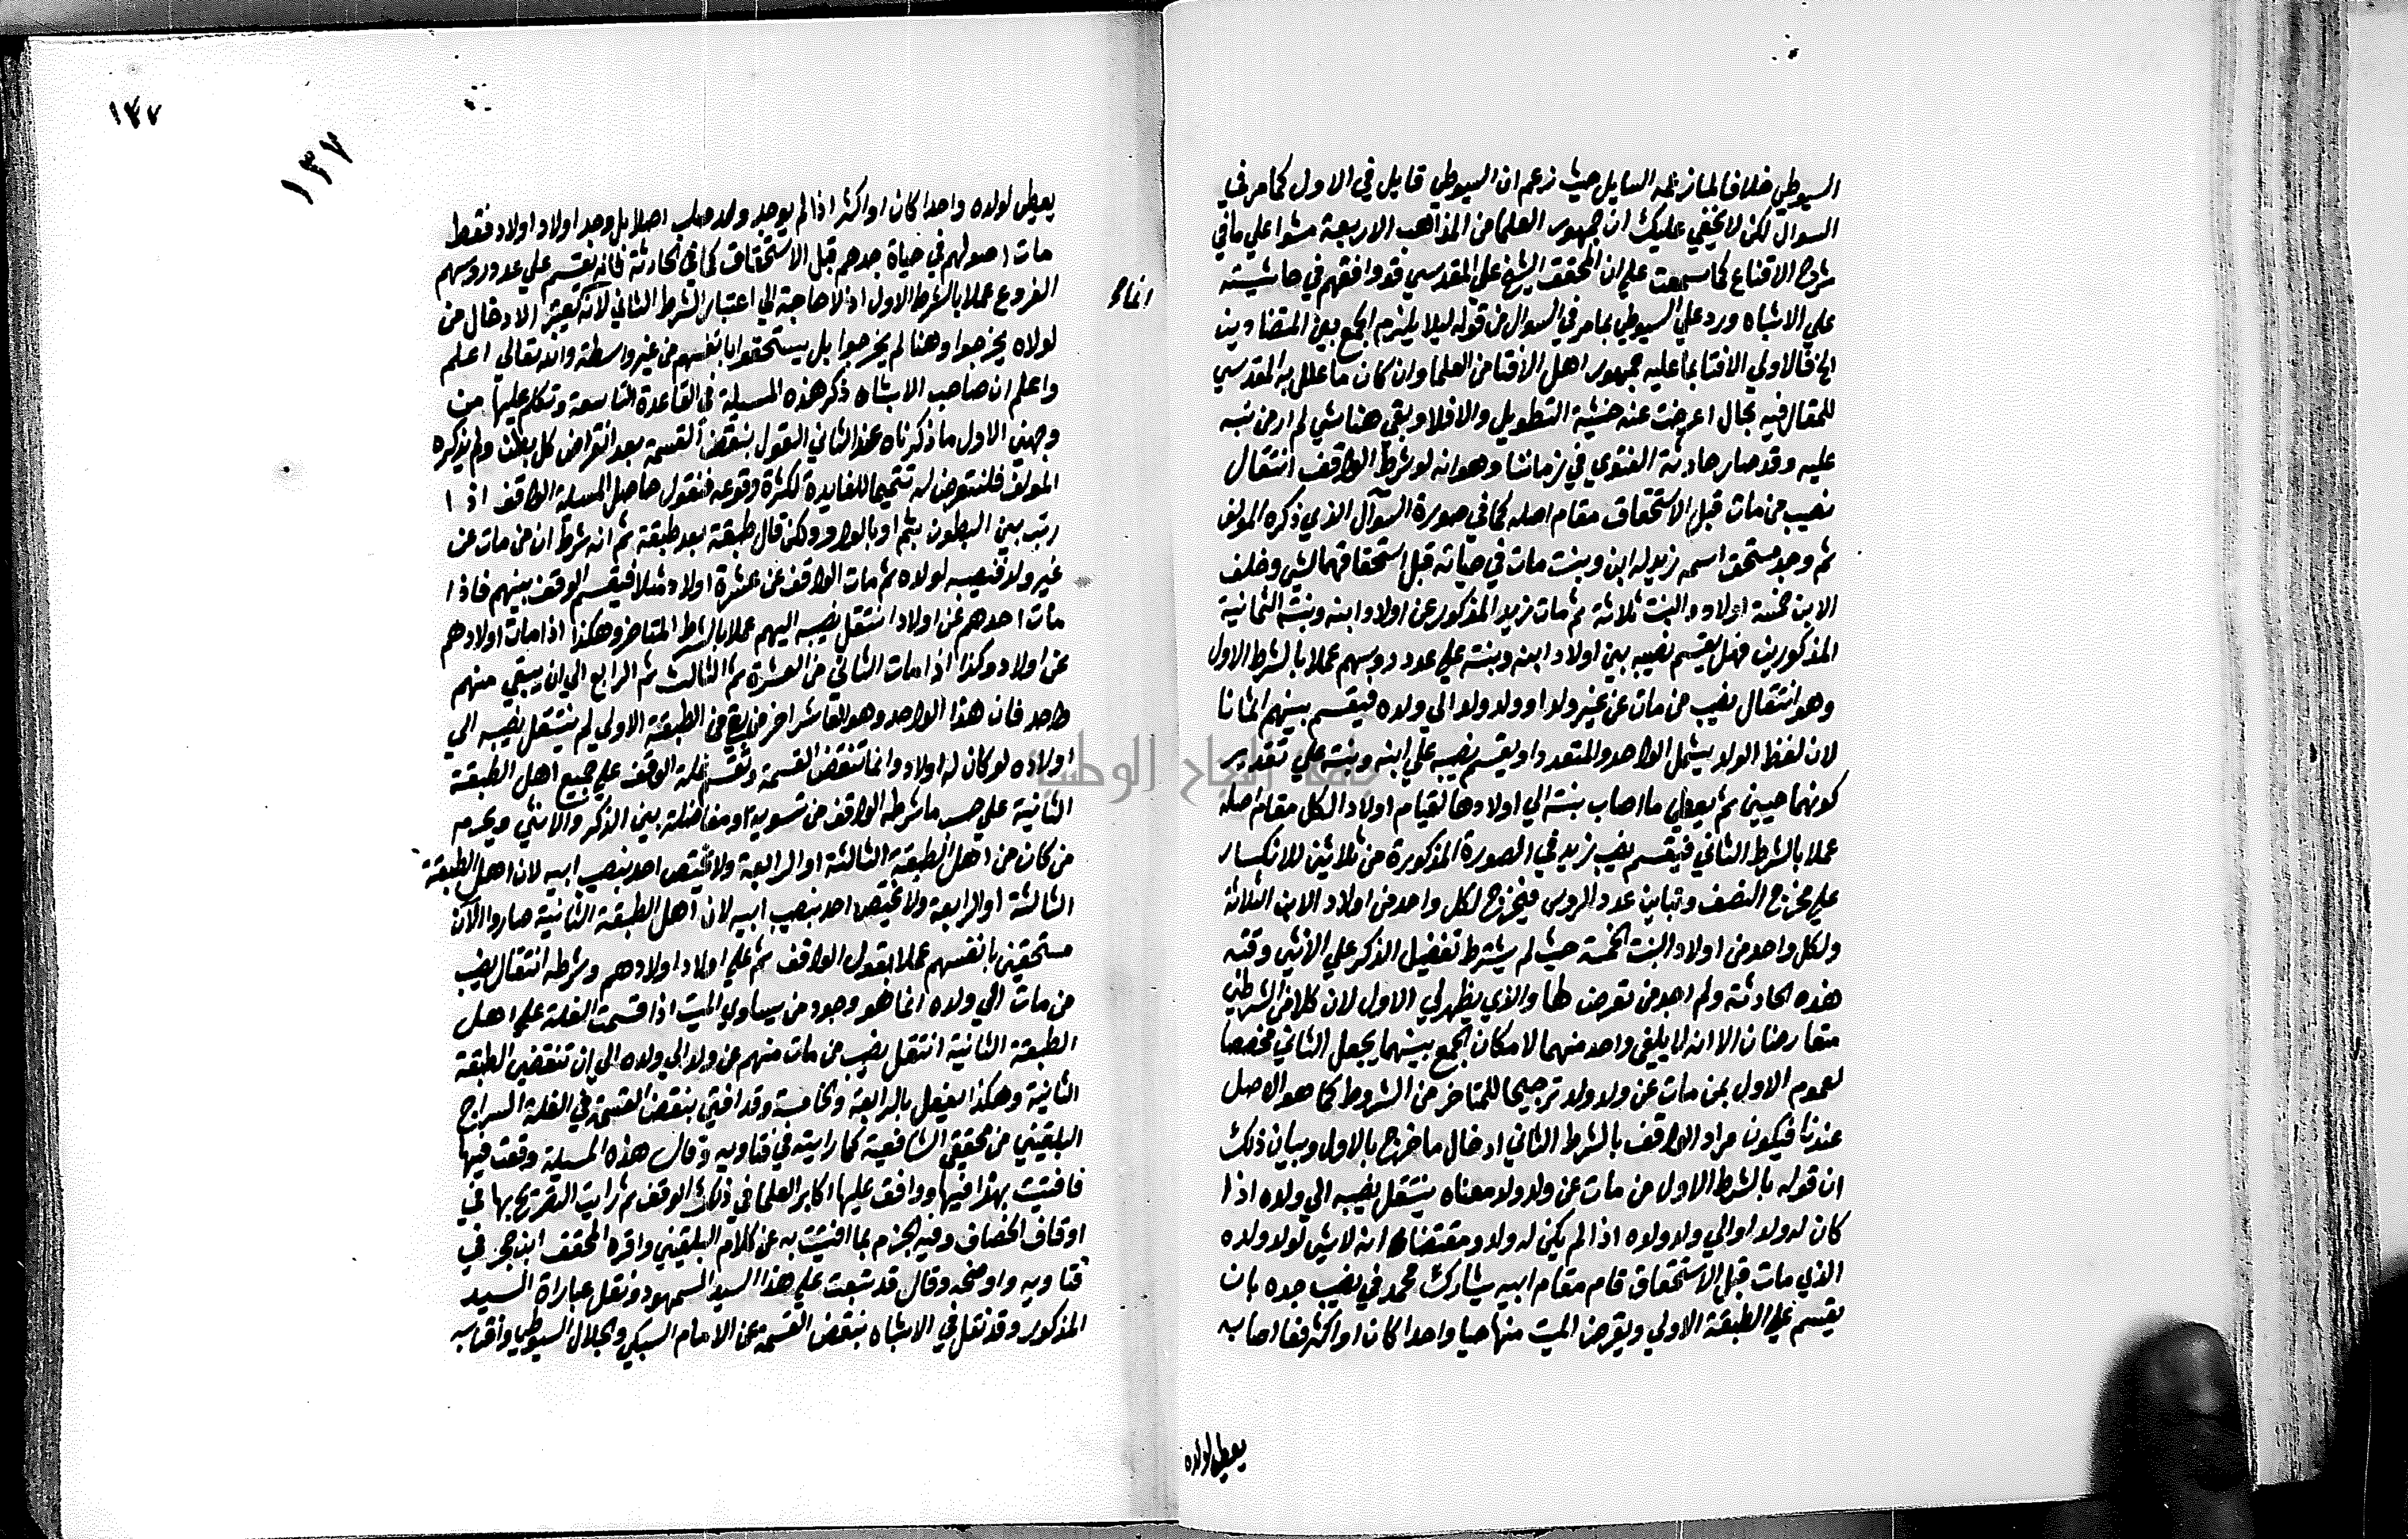 السيوطي خلافا لما زعمه السايل حيث زعم ان السيوطي قايل في الاول كما مر في
السوال لكن لا يخفي عليك ان جمهور العلما من المذاهب الاربعة مشوا علي ما في
شرح الاقناع كما سمعت علي ان المحقق الشيخ علي المقدسي قد وافقهم في حاشيته
علي الاشباه ورد علي السيوطي بما مر في السوال من قوله ليلا يلزم الجمع بين المتضادين
الخ فالاولي الافتا بما عليه جمهور اهل الافتا من العلما وان كان ما علل به المقدسي
للمقال فيه مجال اعرضت عنه خشية التطويل والا فلا وبقي هنا شي لم ار من نبه
عليه وقد صار حادثة الفتوي في زماننا وهو انه لو شرط الواقف انتقال
نصيب من مات قبل الاستحقاق مقام اصله كما في صورة السوال الذي ذكره المولف
ثم وجد مستحق اسمه زيد له ابن وبنت مات في حياته قبل استحقاقهما لشي وخلف
الابن خمسة اولاد والبنت ثلاثة ثم مات زيد المذكور عن اولاد ابنه وبنته الثمانية
المذكورين فهل يقسم نصيبه بين اولاد ابنه وبنته علي عدد روسهم عملا بالشرط الاول
وهو انتقال نصيب من مات عن غير ولد او ولد ولد الي ولده فيقسم بينهم اثمانا
لان لفظ الولد يشمل الواحد والمتعدد او يقسم نصيبه علي ابنه وبنته علي تقدير
كونهما حيين ثم يعطي ما اصاب بنته الي اولادها لقيام اولاد الكل مقام اصله
عملا بالشرط الثاني فيقسم نصيب زيد في الصورة المذكورة من ثلاثين للانكسار
علي مخرج النصف وتباين عدد الروس فيخرج لكل واحد من اولاد الابن الثلاثة
ولكل واحد من اولاد البنت الخمسة حيث لم يشترط تفضيل الذكر علي الانثي وقته
هذه الحادثة ولم اجد من تعرض لها والذي يظهر لي الاول لان كلا من الشرطين
متعارضان الا انه لا يلغي واحد منهما لامكان الجمع بينهما بجعل الثاني مخصصا
لعموم الاول بمن مات عن ولد ولد ترجيحا للمتاخر من الشروط كما هو الاصل
عندنا فيكون مراد الواقف بالشرط الثاني ادخال ما خرج بالاول وبيان ذلك
ان قوله بالشرط الاول من مات عن ولد ولد معناه ينتقل نصيبه الي ولده اذا
كان له ولد او الي ولد ولده اذا لم يكن له ولد ومقتضاه انه لا شي لولد ولده
الذي مات قبل الاستحقاق قام مقام ابيه يشارك محمد في نصيب جده بان
يقسم علي الطبقة الاولي ويفرض الميت منها حيا واحدا كان او اكثر فما اصابه
يعطي لولده
١٣٧
١٣٧
يعطي لولده واحدا كان او اكثر اذا لم يوجد ولد صلب اصلا بل وجد اولاد اولاد فقط
مات اصولهم في حياة جدهم قبل الاستحقاق كما في الحادثة فانه يقسم علي عدد روسهم
الفروع عملا بالشرط الاول اذ لا حاجة الي اعتبار الشرط الثاني لانه يعتبر الادخال من
لولاه يخرجوا وهنا لم يخرجوا بل يستحقوا بانفسهم من غير واسطة والله تعالي اعلم
واعلم ان صاحب الاشباه ذكر هذه المسيلة في القاعدة التاسعة وتكلم عليها من
وجهين الاول ما ذكرناه عنه الثاني القول بنقض القسمة بعد انقراض كل بطن ولم يذكره
المولف فلنتعرض له تتميما للفايدة لكثرة وقوعه فنقول حاصل المسيلة الواقف اذا
رتب بين البطون بثم او بالواو ولكن قال طبقة بعد طبقة ثم انه شرط ان من مات عن
غير ولد فنصيبه لولده ثم مات الواقف عن عشرة اولاد مثلا فيقسم الوقف بينهم فاذا
مات احدهم عن اولاد انتقل نصيبه اليهم عملا بالشرط المتاخر وهكذا اذا مات اولادهم
عن اولاد وكذا اذا مات الثاني من العشرة ثم الثالث ثم الرابع الي ان يبقي منهم
واحد فان هذا الواحد وهو العاشر اخر من بقي من الطبقة الاولي لم ينتقل نصيبه الي
اولاده لو كان له اولاد وانما تنتقض القسمة وتقسم غلة الوقف علي جميع اهل الطبقة
الثانية علي حسب ما شرطه الواقف من تسوية او مفاضلة بين الذكر والانثي ويحرم
من كان من اهل الطبقة الثالثة او الرابعة ولا يختص احد بنصيب ابيه لان اهل الطبقة
الثالثة او الرابعة ولا يختص احد بنصيب ابيه لان اهل الطبقة الثانية صاروا الان
مستحقين بانفسهم عملا بقول الواقف ثم علي اولاد اولادهم وشرطه انتقال نصيب
من مات الي ولده انما هو وجود من يساوي الميت اذا قسمت الغلة علي اهل
الطبقة الثانية انتقل نصيب من مات منهم عن ولد الي ولده الي ان تنقضي الطبقة
الثانية وهكذا يفعل بالرابعة والخامسة وقد افتي بنقض القسمة في الغلة السراج
البلقيني من محققي الشافعية كما رايته في فتاويه وقال هذه المسيلة وقعت فيها
فافتيت بهذا فيها ووافق عليها اكابر العلما في ذلك الوقت ثم رايت التصريح بها في
اوقاف الخصاف وفيه الجزم بما افتيت به من كلام البلقيني واقره المحقق ابن حجر في
فتاويه واوضحه وقال قد تبعت علي هذا السيد السمهودي ونقل عبارة السيد
المذكور وقد نقل في الاشباه بنقض القسمة عن الامام السبكي والجلال السيوطي وافتا به
جامعة النجاح الوطنية